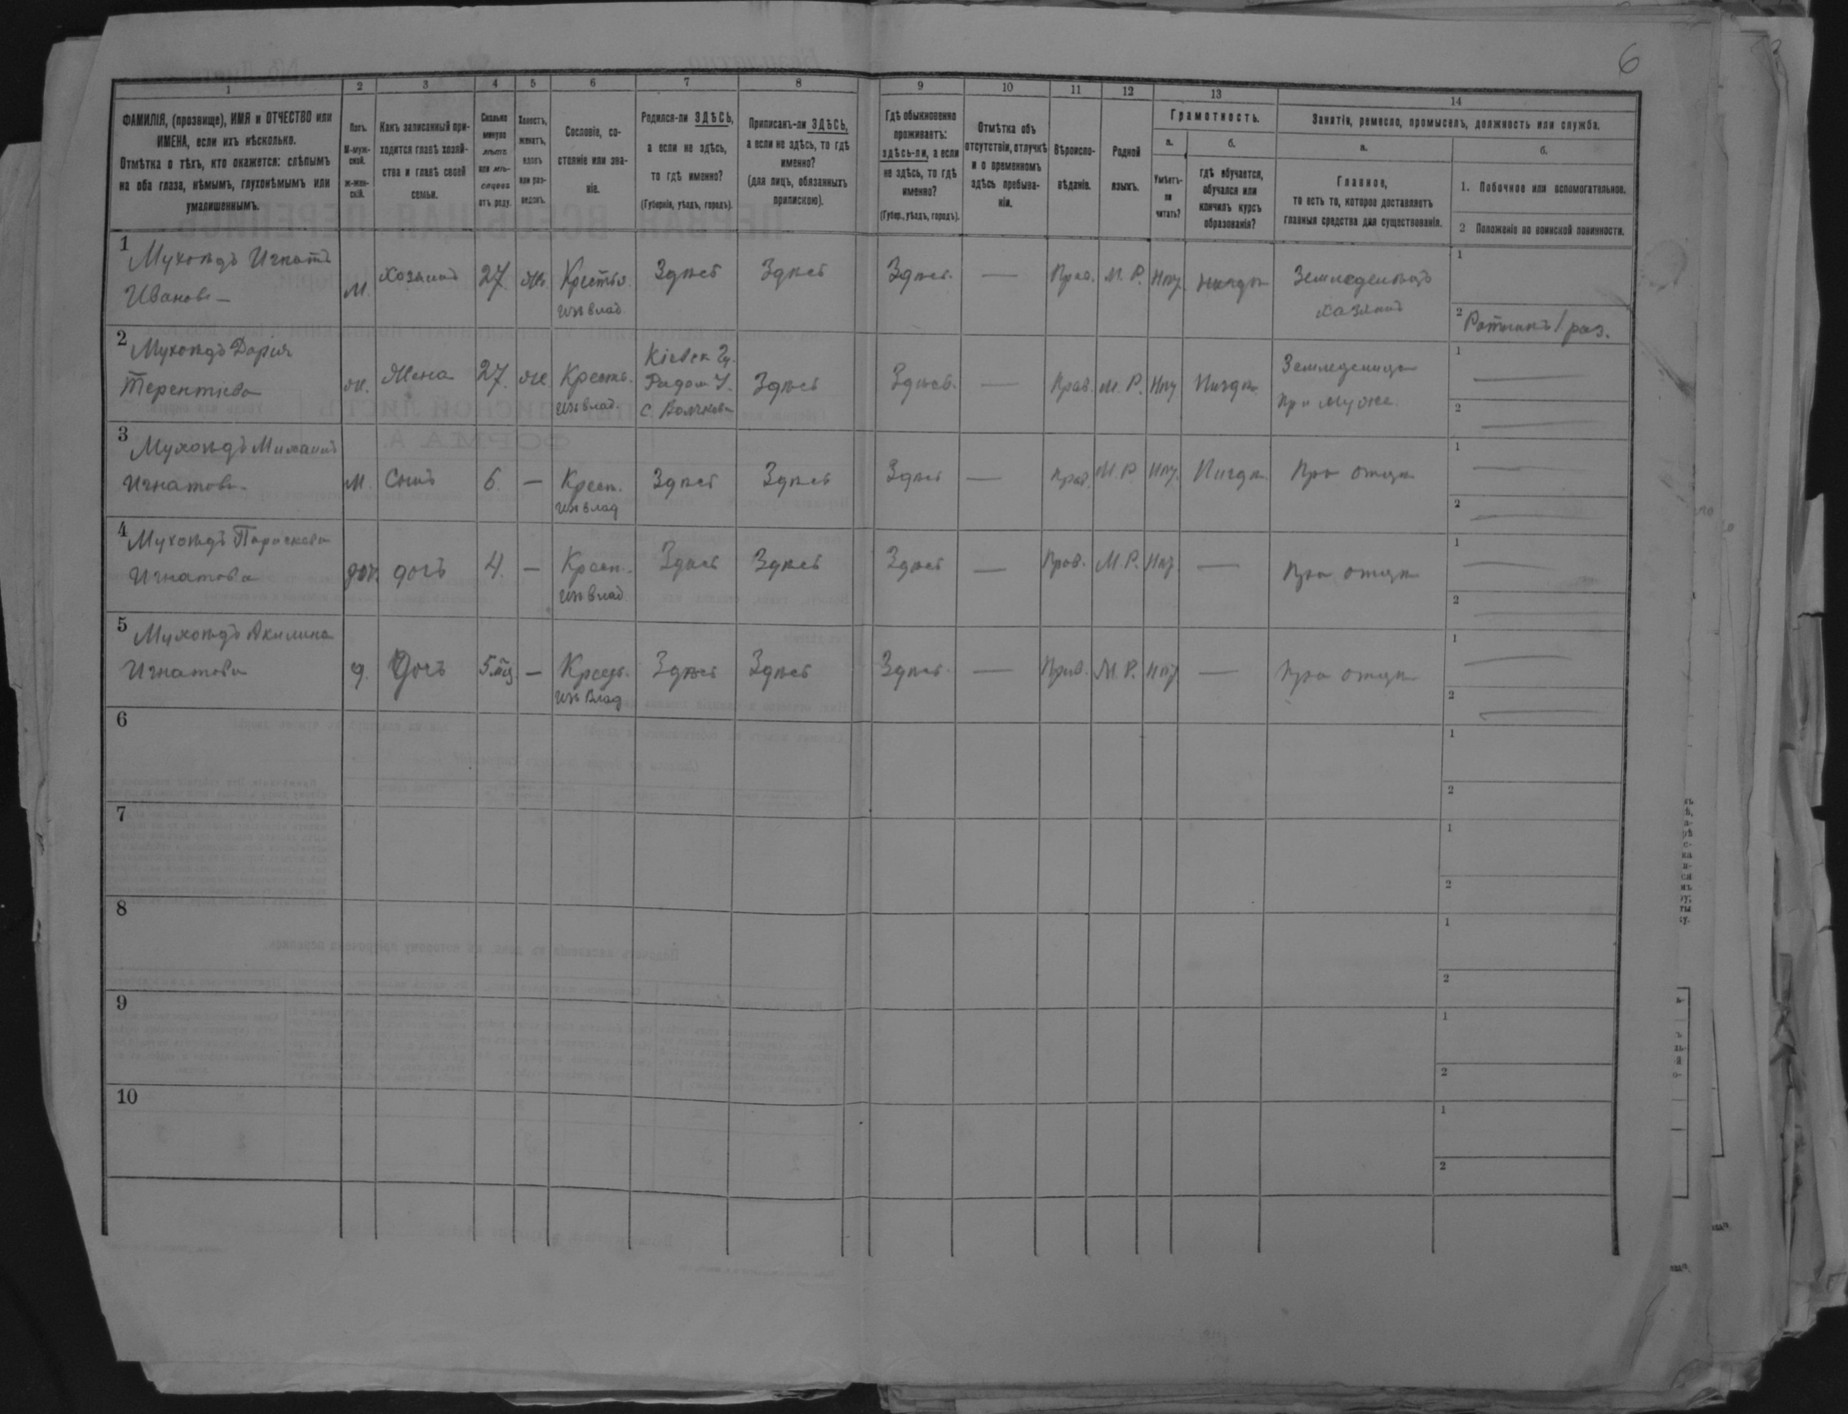 6
1 2 3 4 5 6 7 8 9 10 11 12 13 14
ФАМИЛІЯ, (прозвище), ИМЯ и ОТЧЕСТВО или
ИМЕНА, если ихъ нѣсколько.
Отмѣтка о тѣхъ, кто окажется: слѣпымъ
на оба глаза, нѣмымъ, глухонѣмымъ или
умалишеннымъ.
Полъ.
М-муж-
ской.
ж-жен-
скій.
Какъ записанный при-
ходится главѣ хозяй-
ства и главѣ своей
семьи.
Сколько
минуло
лѣтъ
или мѣ-
сяцевъ
отъ роду.
Холостъ,
женатъ,
вдовъ
или раз-
веденъ.
Сословіе, со-
стояніе или зва-
ніе.
Родился-ли ЗДѢСЬ,
а если не здѣсь,
то гдѣ именно?
(Губернія, уѣздъ, городъ).
Приписанъ-ли ЗДѢСЬ,
а если не здѣсь, то гдѣ
именно?
(для лицъ, обязанныхъ
припискою).
Гдѣ обыкновенно
проживаетъ:
здѣсь-ли, а если
не здѣсь, то гдѣ
именно?
(Губер., уѣздъ, городъ).
Отмѣтка объ
отсутствіи, отлучкѣ
и о временномъ
здѣсь пребыва-
ніи.
Вѣроиспо-
вѣданіе.
Родной
языкъ.
Грамотность.
а.
Умѣетъ-
ли
читать?
б.
гдѣ обучается,
обучался или
кончилъ курсъ
образованія?
Занятіе, ремесло, промыселъ, должность или служба.
а.
Главное,
то есть то, которое доставляетъ
главныя средства для существованія.
б.
1. Побочное или вспомогательное.
2 Положеніе по воинской повинности.
1 Мухоѣдъ Игнатъ
Иванов –
М. Хозяинъ 27. Ж. Крестья. Здѣсь Здѣсь Здѣсь — Прав. М. Р. Нѣт Земледелецъ
изъ влад. хозяинъ
1
2 Ратникъ 1 раз.
2 Мухоѣдъ Дарія
Терентіева
Ж. Жена 27. Ж. Кресть.
изъ влад.
Кіевск Гу.
Радом У.
с.
Здѣсь Здѣсь — Прав. М. Р. Нѣт Нигдѣ
при муже
1 —
2 —
3 Мухоѣдъ Михаилъ
Игнатовъ
М. Сынъ 6. — Крест. Здѣсь Здѣсь Здѣсь — Прав. М. Р. Нѣт. Нигдѣ При отцѣ
изъ влад
1 —
2 —
4 Мухоѣдъ Параскева
Игнатова
доч. дочь 4. — Крест. Здѣсь Здѣсь Здѣсь — Прав. М. Р. Нѣт — При отцѣ
изъ влад
1 —
2 —
5 Мухоѣдъ Акилина
Игнатова
д. Дочь 5 мц — Кресть. Здѣсь Здѣсь Здѣсь — Прав. М. Р. Нѣт — При отцѣ
изъ влад
1 —
2 —
6
1
2
7
1
2
8
1
2
9
1
2
10
1
2